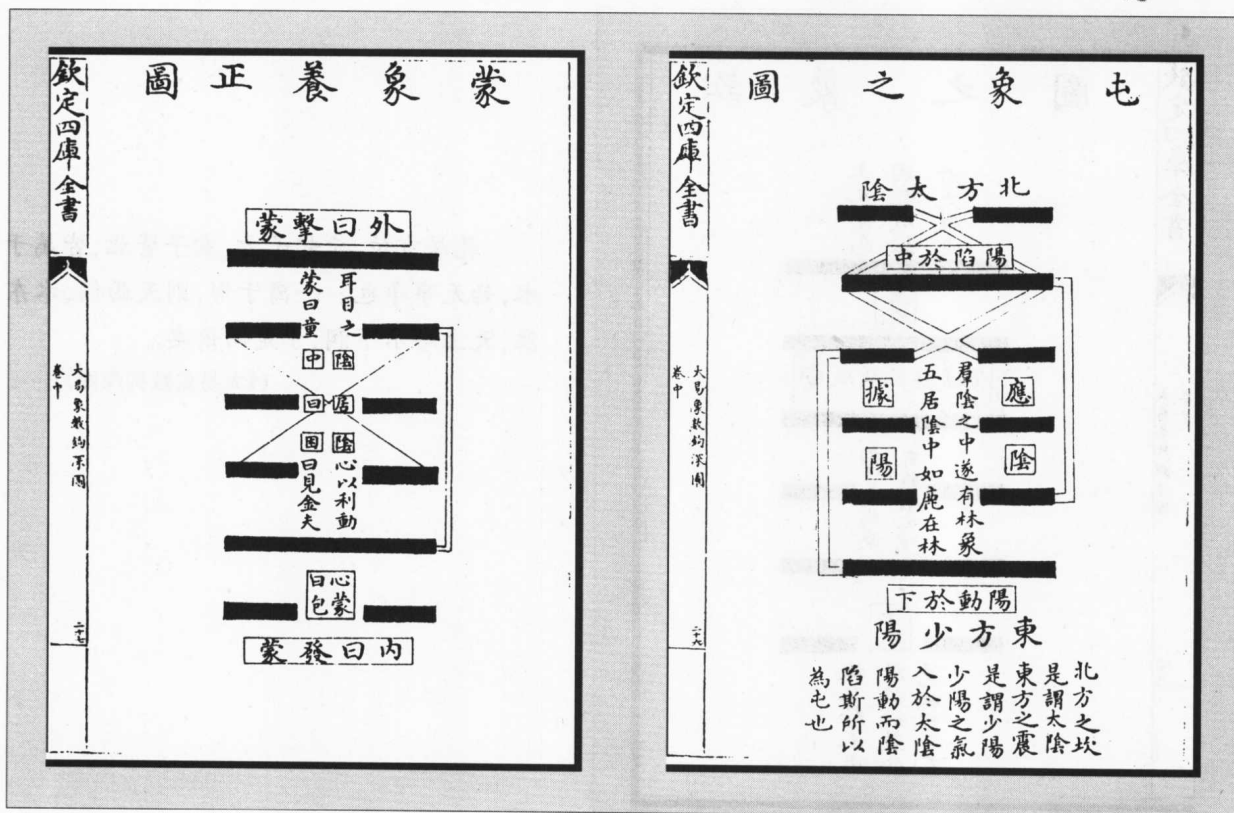 屯象之圖
北方太陰
陽陷於中
羣陰之中遂有林象
五居陰中如鹿在林
應陰
據陽
陽動於下
東方少陽
北方之坎
是謂太陰
東方之震
是謂少陽
少陽之氣
入於太陰
陽動而陰
陷斯所以
為屯也
欽定四庫全書
大易象數鈎深圖
卷中
二十六
蒙象養正圖
外曰擊蒙
耳目之
蒙曰童
陰周陰
中曰困
心以利動
曰見金夫
心蒙
曰包
內曰發蒙
欽定四庫全書
大易象數鈎深圖
卷中
二十七